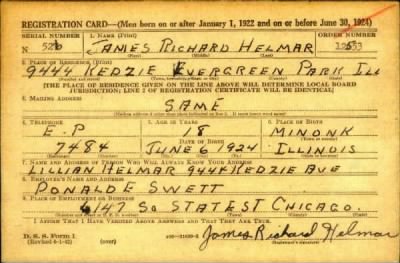 REGISTRATION CARD—(Men born on or after January 1, 1922 and on or before June 30, 1924)
SERIAL NUMBER 1. NAME (Print) ORDER NUMBER
N 526 JAMES RICHARD HELMAR 12533
2. PLACE OF RESIDENCE (Print)
9444 KEDZIE EVERGREEN PARK ILL
[THE PLACE OF RESIDENCE GIVEN ON THE LINE ABOVE WILL DETERMINE LOCAL BOARD
JURISDICTION; LINE 2 OF REGISTRATION CERTIFICATE WILL BE IDENTICAL]
3. MAILING ADDRESS
SAME
4. TELEPHONE 5. AGE IN YEARS 6. PLACE OF BIRTH
E.P 18 MINONK
DATE OF BIRTH
7484 JUNE 6 1924 ILLINOIS
7. NAME AND ADDRESS OF PERSON WHO WILL ALWAYS KNOW YOUR ADDRESS
LILLIAN HELMAR 9444 KEDZIE AVE
8. EMPLOYER'S NAME AND ADDRESS
DONALD E SWETT
9. PLACE OF EMPLOYMENT OR BUSINESS
6147 SO STATE ST CHICAGO.
I AFFIRM THAT I HAVE VERIFIED ABOVE ANSWERS AND THAT THEY ARE TRUE.
D. S. S. Form 1
(Revised 6-1-42) (over) James Richard Helmar